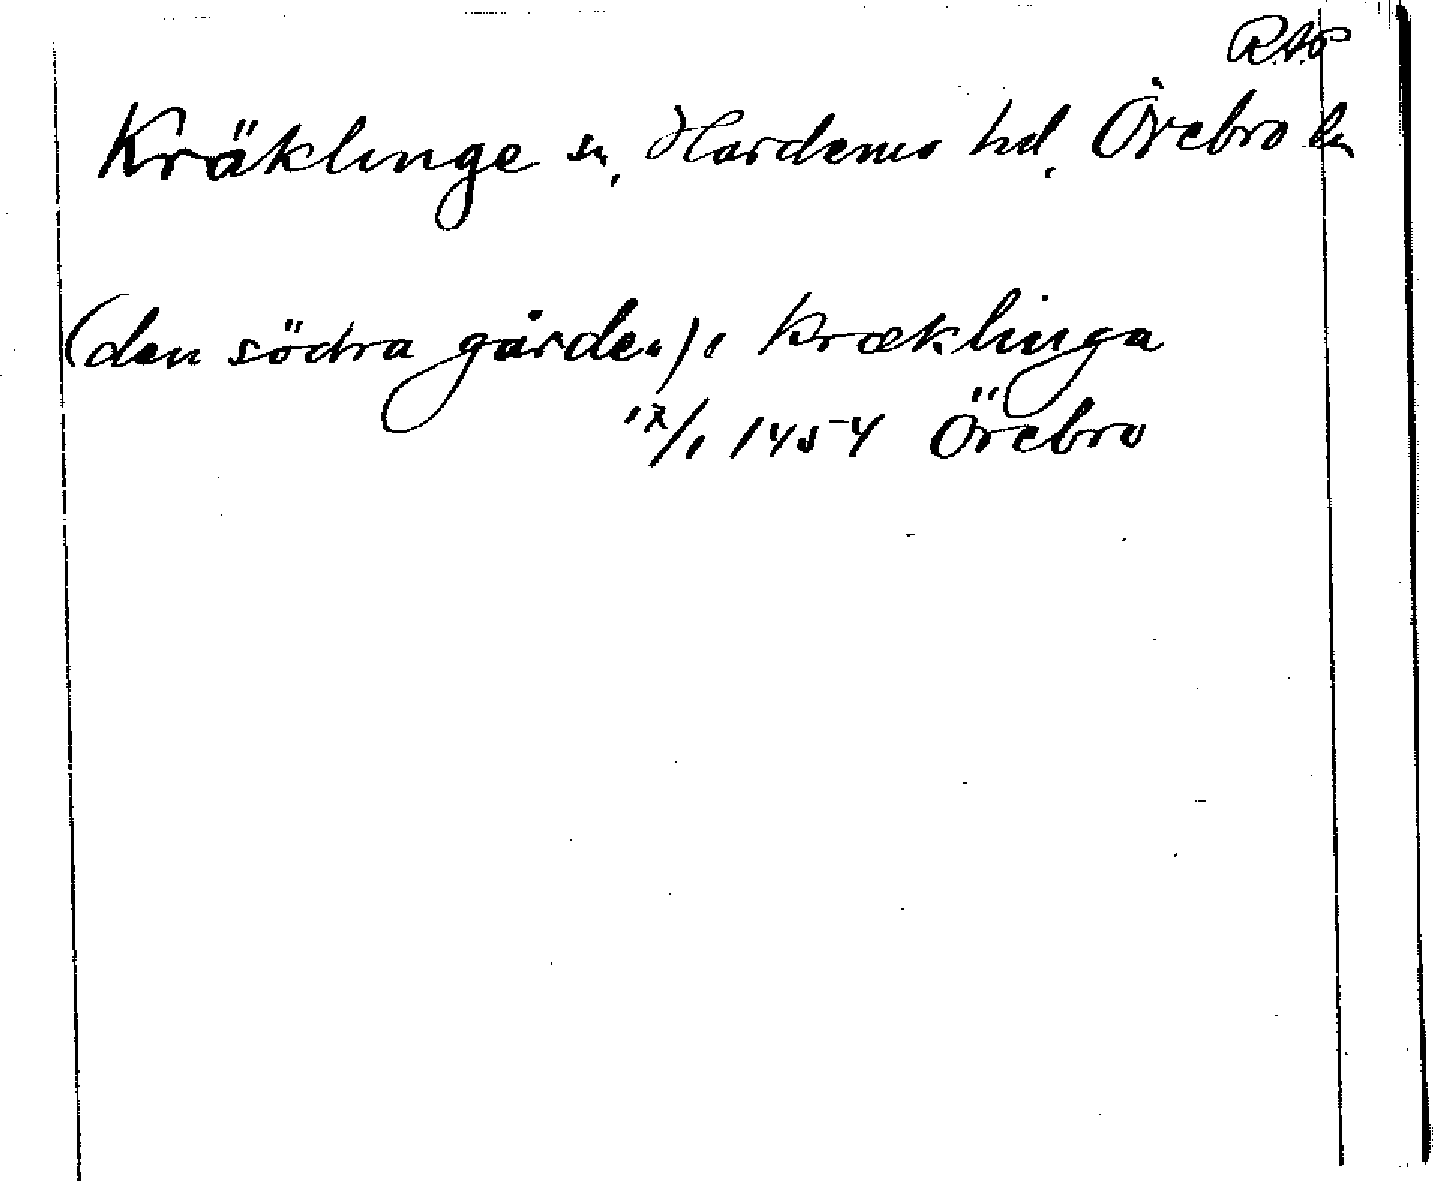 RAp
Kräklinge sn, Hardemo hd, Örebro ln
(den södra gården) i kræklinga
17/1 1454 Örebro